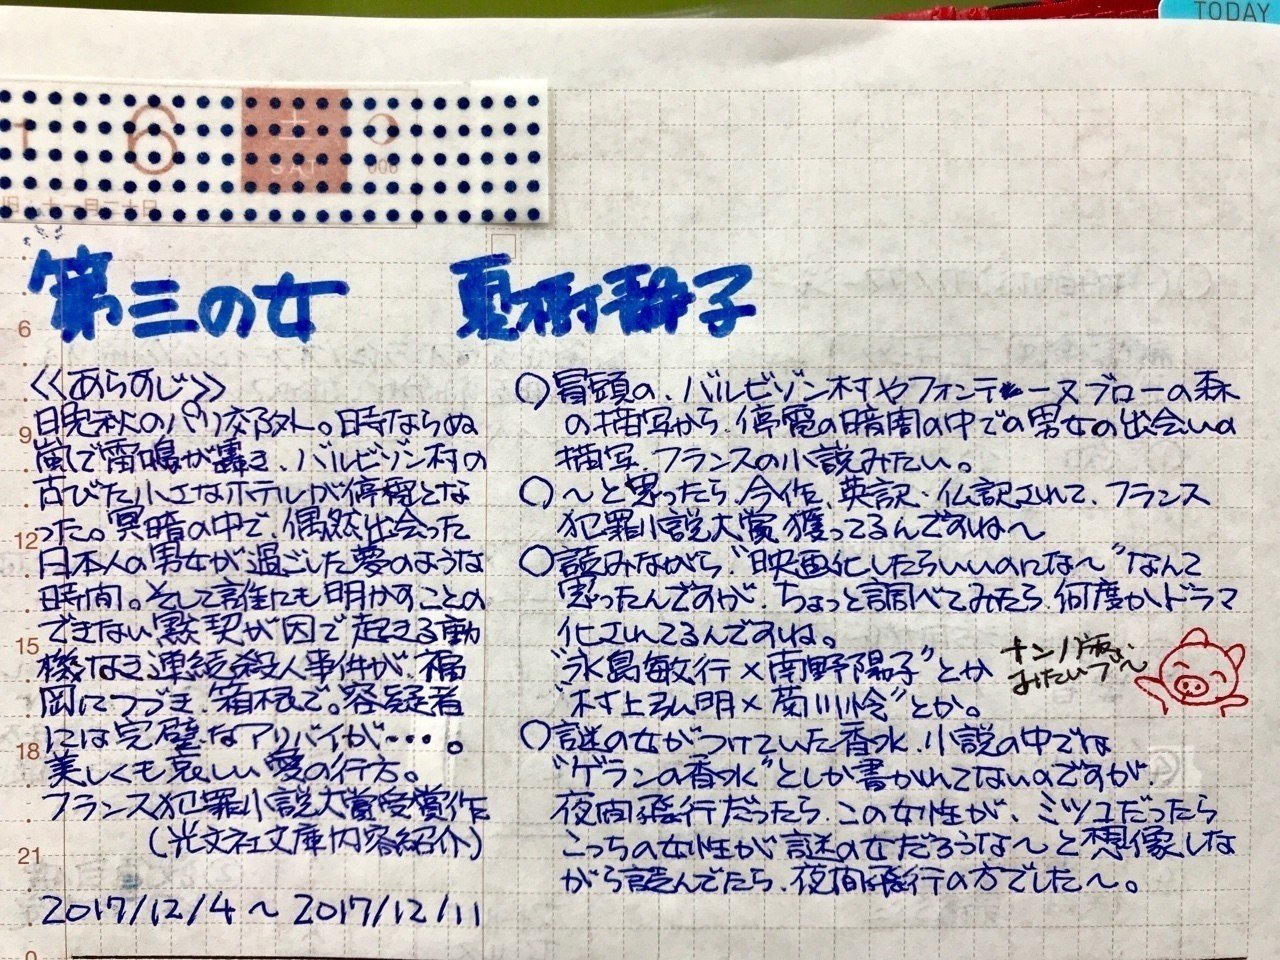 TODAY
6
土
SAT
006
旧:十一月二十日
第三の女 夏樹静子
6
9
12
15
18
21
0
《あらすじ》
日晩秋のパリ郊外。時ならぬ
嵐で雷鳴が轟き、バルビゾン村の
古びた小さなホテルが停電とな
った。冥暗の中で、偶然出会った
日本人の男女が過ごした夢のような
時間。そして誰にも明かすことの
できない黙契が因で起きる動
機なき連続殺人事件が、福
岡につづき、箱根で。容疑者
には完璧なアリバイが・・・。
美しくも哀しい愛の行方。
フランス犯罪小説大賞受賞作
(光文社文庫内容紹介)
2017/12/4～2017/12/11
○冒頭の、バルビゾン村やフォンテーヌブローの森
の描写から、停電の暗闇の中での男女の出会いの
描写、フランスの小説みたい。
○～と思ったら、今作、英訳・仏訳されて、フランス
犯罪小説大賞獲ってるんですね～
○読みながら、“映画化したらいいのにな～”なんて
思ったんですが、ちょっと調べてみたら、何度かドラマ
化されてるんですね。
“永島敏行×南野陽子”とか
“村上弘明×菊川怜”とか。
ナンノ版
みたいブ～
○謎の女がつけていた香水、小説の中では
“ゲランの香水”としか書かれてないのですが、
夜間飛行だったら、この女性が、ミツコだったら
こっちの女性が謎の女だろうな～と想像しな
がら読んでたら、夜間飛行の方でした～。